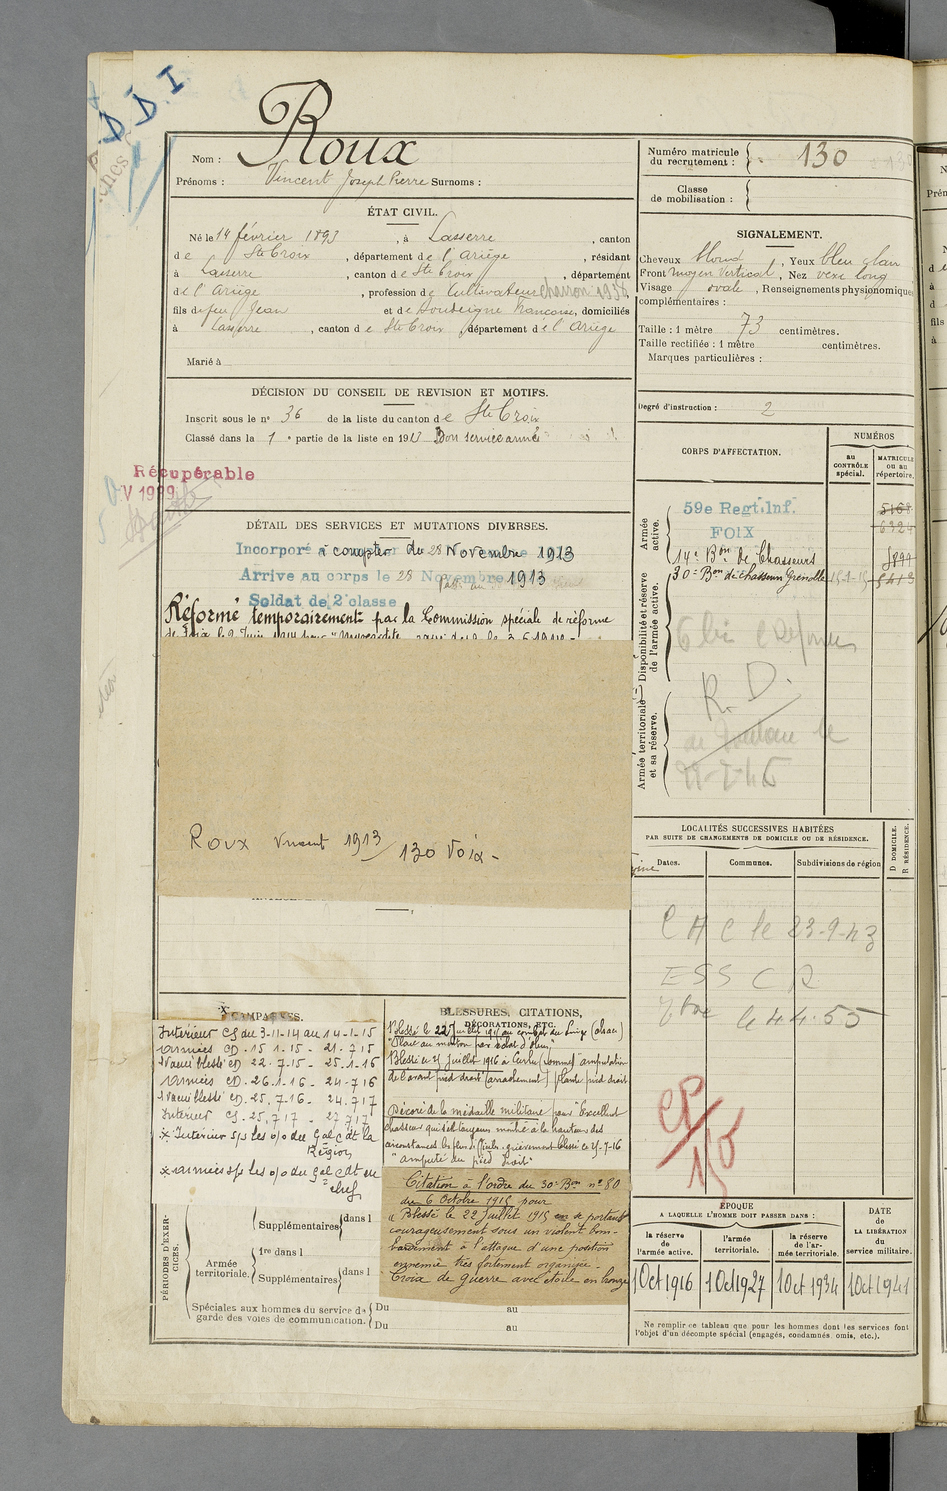 D. D. I
Roux
Nom :
Prénoms : Vincent Joseph Pierre Surnoms :
Numéro matricule du recrutement : 130
Classe de mobilisation :
ÉTAT CIVIL.
Né le 14 février 1893, à Lasserre, canton
de Ste Croix, département de l'Ariège, résidant
à Lasserre, canton de Ste Croix, département
de l'Ariège, profession de Cultivateur
fils de feu Jean et de Soudeigne Francoise, domiciliés
à Lasserre, canton de Ste Croix, département de l'Ariège
Marié à
SIGNALEMENT.
Cheveux blond, Yeux bleu clair
Front moyen Vertical, Nez vexe long
Visage ovale, Renseignements physionomiques
complémentaires :
Taille : 1 mètre 73 centimètres.
Taille rectifiée : 1 mètre centimètres.
Marques particulières :
DÉCISION DU CONSEIL DE REVISION ET MOTIFS.
Inscrit sous le n° 36 de la liste du canton de Ste Croix
Classé dans la 1e partie de la liste en 1913 Bon service armé
Degré d'instruction : 2
Récupérable
DÉTAIL DES SERVICES ET MUTATIONS DIVERSES.
Incorporé à compter du 28 Novembre 1913
Arrive au corps le 28 Novembre 1913
Soldat de 2e classe
Réformé temporairement par la Commission spéciale de réforme
Roux Vincent 1913/130 Voix -
CORPS D'AFFECTATION.
NUMÉROS
au CONTRÔLE spécial.
MATRICULE ou au répertoire.
Armée active.
59e Regt. Inf.
FOIX
14e Bon de Chasseurs
30e Bon de chasseurs Grenoble
Disponibilité et réserve de l'armée active.
R. D.
Armée territoriale et sa réserve.
LOCALITÉS SUCCESSIVES HABITÉES
PAR SUITE DE CHANGEMENTS DE DOMICILE OU DE RÉSIDENCE.
Dates.
Communes.
Subdivisions de région
D DOMICILE.
R RÉSIDENCE.
C H C le 23-9-43
le 4.4.55
CAMPAGNES.
Intérieur CS du 3-11-14 au 14-1-15
Armées CD. 15.1.15. - 21.7.15
Evacué blessé CD. 22.7.15 - 25.1.16
Armées CD. 26.1.16 - 24.7.16
Evacué blessé CD. 25.7.16 - 24.7.17
Intérieur CS. 25.7.17 - 27.7.17
x Intérieur s/s les o/o du Gal Cdt la
Région
x Armées s/s les o/o du Gal Cdt en
chef
BLESSURES, CITATIONS,
DÉCORATIONS, ETC.
Blessé le 22 Juillet 1915 au combat du Linge (alsace)
"Plaie au menton par éclat d'obus"
Blessé le 25 Juillet 1916 à Curlu (Somme) "amputation
de l'avant pied droit (arrachement) plante pied droit
Décoré de la médaille militaire pour "Excellent
chasseur qui s'est toujours montré à la hauteur des
circonstances les plus difficiles, grièvement blessé le 25-7-16
"amputé du pied droit"
Citation à l'ordre du 30e Bon n° 80
du 6 Octobre 1915 pour
« Blessé le 22 Juillet 1915 en se portant
courageusement sous un violent bom-
bardement à l'attaque d'une position
ennemie très fortement organisée -
Croix de guerre avec étoile en bronze
PÉRIODES D'EXERCICES.
Supplémentaires dans l
Armée territoriale.
1re dans l
Supplémentaires dans l
Spéciales aux hommes du service de
garde des voies de communication.
Du au
Du au
ÉPOQUE
A LAQUELLE L'HOMME DOIT PASSER DANS :
la réserve de l'armée active.
l'armée territoriale.
la réserve de l'armée territoriale.
DATE de LA LIBÉRATION du service militaire.
1 Oct 1916
1 Oct 1927
1 Oct 1934
1 Oct 1941
Ne remplir ce tableau que pour les hommes dont les services font
l'objet d'un décompte spécial (engagés, condamnés, omis, etc.).